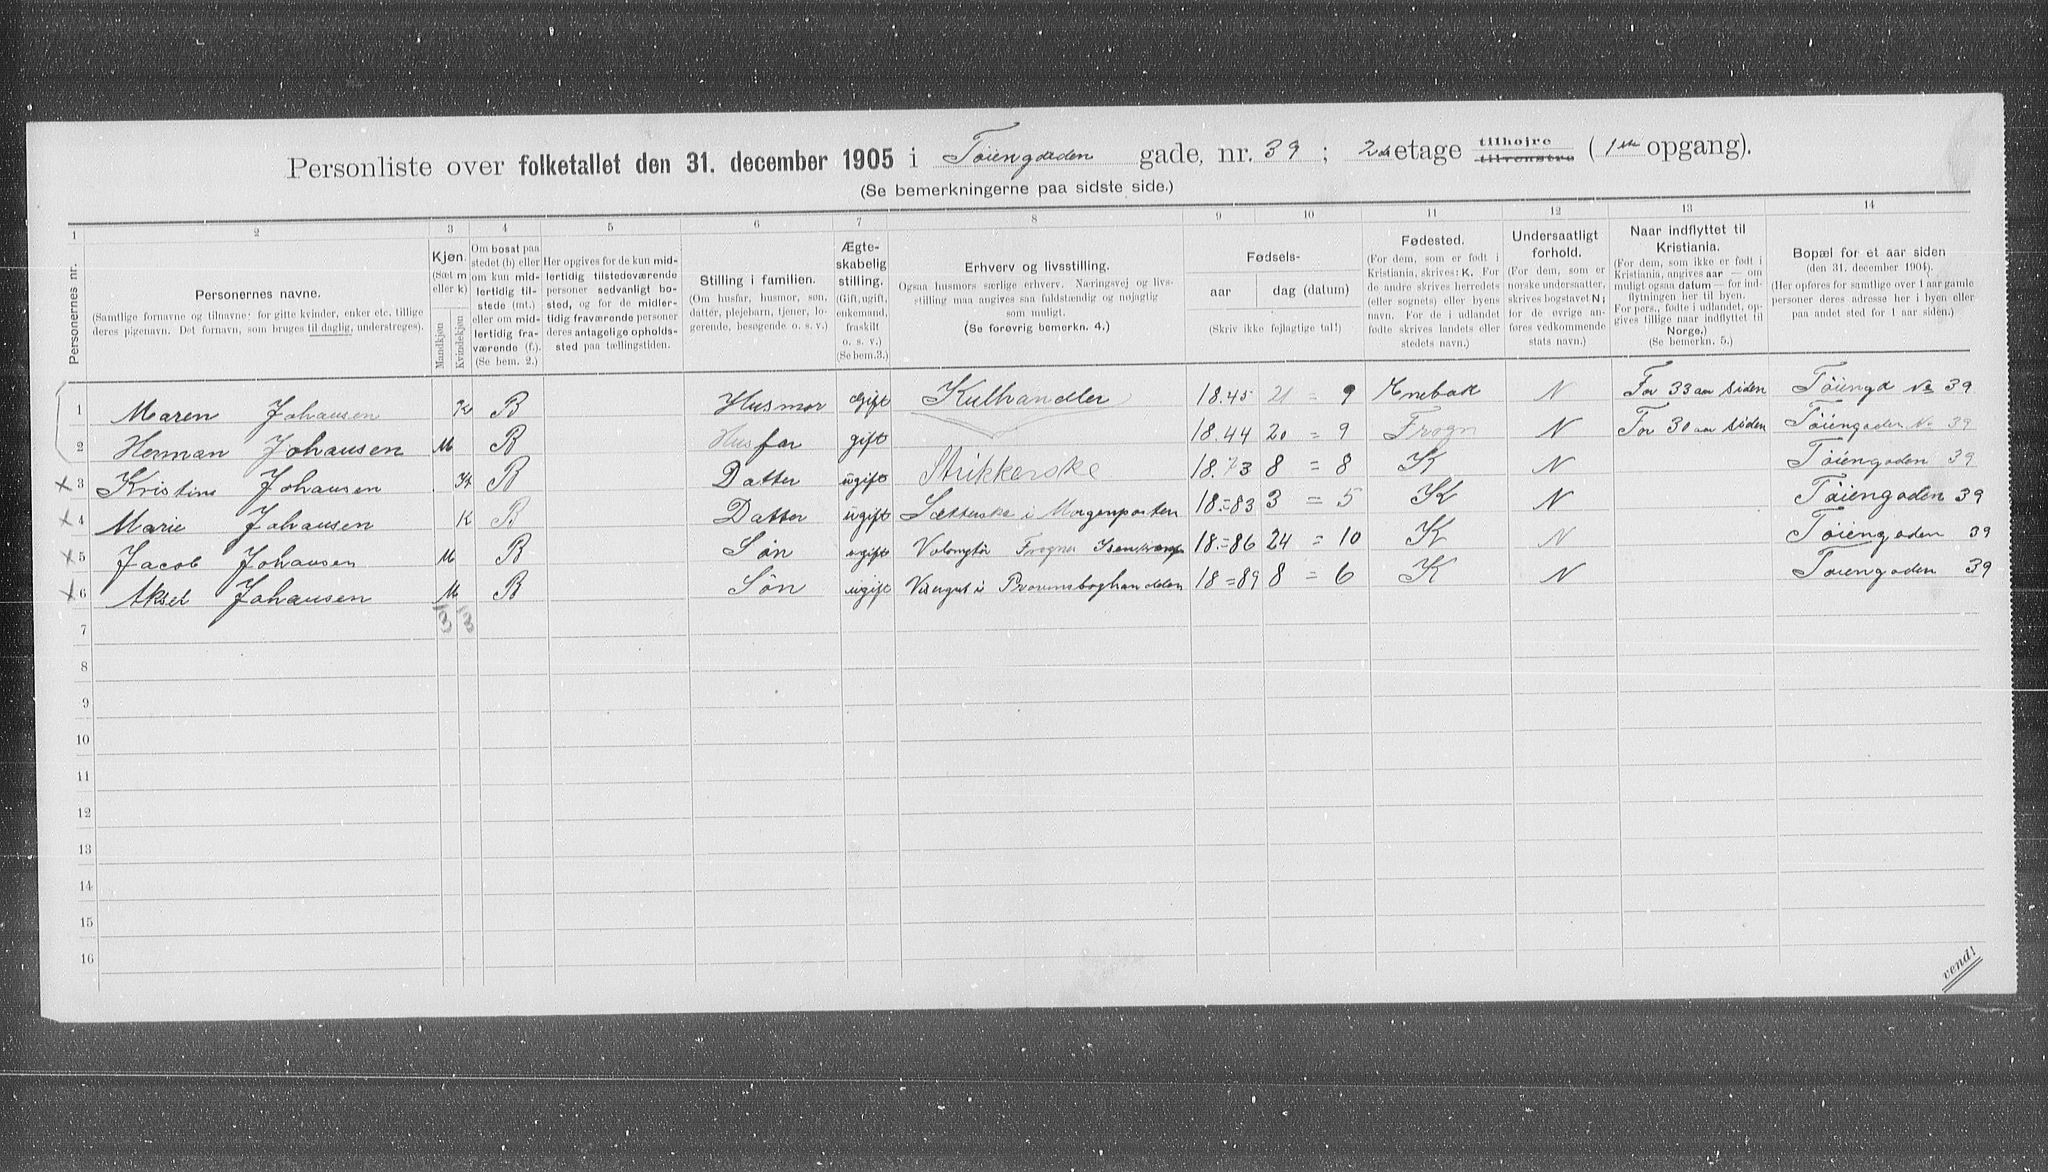 Personliste over folketallet den 31. december 1905 i Töiengaden gade, nr. 39 ; 2den etage tilhøjre tilvenstre (1ste opgang).
(Se bemerkningerne paa sidste side.)
1 2 3 4 5 6 7 8 9 10 11 12 13 14
Personernes nr.
Personernes navne.
(Samtlige fornavne og tilnavne: for gifte kvinder, enker etc. tillige deres pigenavn. Det fornavn, som bruges til daglig, understreges).
Kjøn.
(Sæt m eller k)
Mandkjøn
Kvindekjøn
Om bosat paa stedet (b) eller om kun midlertidig tilstede (mt.) eller om midlertidig fraværende (f.). (Se bem. 2.)
Her opgives for de kun midlertidig tilstedeværende personer sedvanligt bosted, og for de midlertidig fraværende personer deres antagelige opholdssted paa tællingstiden.
Stilling i familien.
(Om husfar, husmor, søn, datter, plejebarn, tjener, logerende, besøgende o. s. v.)
Ægteskabelig stilling.
(Gift, ugift, enkemand, fraskilt o. s. v.) (Se bem. 3.)
Erhverv og livsstilling.
Ogsaa husmors særlige erhverv. Næringsvej og livsstilling maa angives saa fuldstændig og nøjagtig som muligt.
(Se forøvrig bemerkn. 4.)
Fødsels-
aar dag (datum)
(Skriv ikke fejlagtige tal!)
Fødested.
(For dem, som er født i Kristiania, skrives: K. For de andre skrives herredets (eller sognets) eller byens navn. For de i udlandet fødte skrives landets eller stedets navn.)
Undersaatligt forhold.
(For dem, som er norske undersaatter, skrives bogstavet N; for de øvrige anføres vedkommende stats navn.)
Naar indflyttet til Kristiania.
(For dem, som ikke er født i Kristiania, angives aar — om muligt ogsaa datum — for indflytningen her til byen. For pers., fødte i udlandet, opgives tillige naar indflyttet til Norge.)
(Se bemerkn. 5.)
Bopæl for et aar siden
(den 31. december 1904).
(Her opføres for samtlige over 1 aar gamle personer deres adresse her i byen eller paa andet sted for 1 aar siden.)
1 Maren Johansen K B Husmor Gift Kulhandler 18.45 21 = 9 Enebak N For 33 aar siden Töiengd No 39
2 Herman Johansen M B Husfar gift 18.44 20 = 9 Frogn N For 30 aar siden Töiengaden No 39
x 3 Kristine Johansen K B Datter ugift Strikkerske 18.73 8 = 8 K N Töiengaden 39
x 4 Marie Johansen K B Datter ugift Sætterske i Morgenposten 18=83 3 = 5 K N Töiengaden 39
x 5 Jacob Johansen M B Søn ugift Volongtör Frogner 18=86 24 = 10 K N Töiengaden 39
x 6 Aksel Johansen M B Søn ugift Visergut i 18=89 8 = 6 K N Töiengaden 39
7
8
9
10
11
12
13
14
15
16
vend!